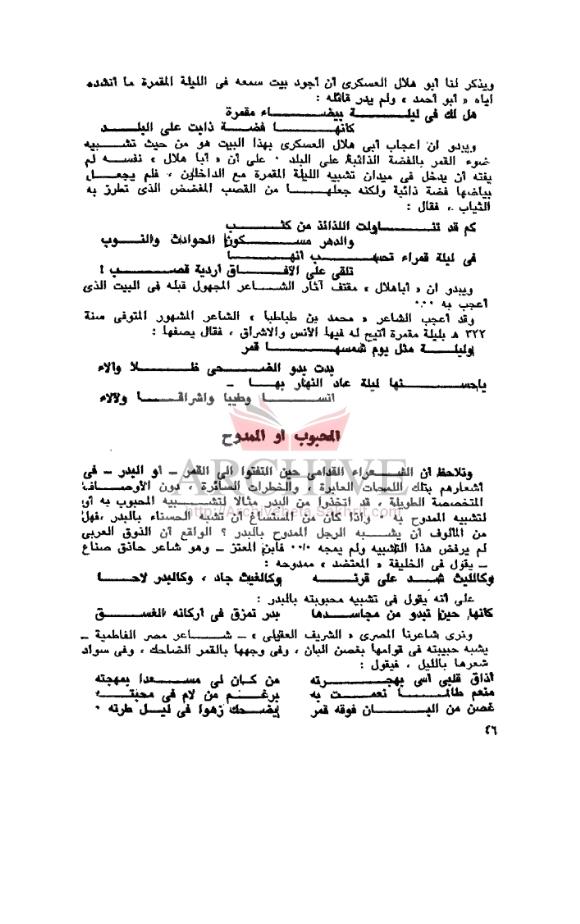 ويذكر لنا أبو هلال العسكرى أن أجود بيت سمعه فى الليلة المقمرة ما أنشده
اياه « أبو أحمد » ولم يدر قائله :
هل لك فى ليلـــة بيضـــاء مقمرة
كأنهـــا فضـــة ذابت على البلـــد
ويبدو أن اعجاب أبى هلال العسكرى بهذا البيت هو من حيث تشـــبيه
ضوء القمر بالفضة الذائبة على البلد ٠ على أن « أبا هلال » نفســـه لم
يفته أن يدخل فى ميدان تشبيه الليلة المقمرة مع الداخلين ، فلم يجعـــل
بياضها فضة ذائبة ولكنه جعلهـــا من القصب المفضض الذى تطرز به
الثياب ، فقال :
كم قد تنـــاولت اللذائذ من كثـــب
والدهر مســـكون الحوادث والنـــوب
فى ليلة قمراء تحســـب أنهـــا
تلقى على الآفـــاق أردية قصـــب !
ويبدو أن « أباهلال » مقتف آثار الشـــاعر المجهول قبله فى البيت الذى
أعجب به ٠٠٠
وقد أعجب الشاعر « محمد بن طباطبا » الشاعر المشهور المتوفى سنة
٣٢٢ هـ بليلة مقمرة أتيح له فيها الأنس والاشراق ، فقال يصفها :
وليلـــة مثل يوم شمسهـــا قمر
بدت بدو الضـــحى ظـــلا وآلاء
ياحســـنها ليلة عاد النهار بهـــا ــ
أنســـا وطيبا واشراقـــا ولألاء
المحبوب أو الممدوح
ARCHIVE
http://Archivebeta.Sakhrit.com
ونلاحظ أن الشـــعراء القدامى حين التفتوا الى القمر ــ أو البدر ــ فى
أشعارهم بتلك اللمحات العابرة ، والخطرات السائرة ، دون الأوصـــاف
المتخصصة الطويلة ، قد اتخذوا من البدر مثالا لتشـــبيه المحبوب به أو
لتشبيه الممدوح به ٠ واذا كان من المستساغ أن تشبه الحسناء بالبدر ،فهل
من المألوف أن يشـــبه الرجل الممدوح بالبدر ؟ الواقع أن الذوق العربى
لم يرفض هذا التشبيه ولم يمجه ٠٠٠ فابن المعتز ــ وهو شاعر حاذق صناع
ــ يقول فى الخليفة « المعتضد » ممدوحه :
وكالليث شـــد على قرنـــه وكالغيث جاد ، وكالبدر لاحـــا
على أنه يقول فى تشبيه محبوبته بالبدر :
كأنها حين تبدو من مجاســـدها بدر تمزق فى أركانه الغســـق
ونرى شاعرنا المصرى « الشريف العقيلى » ــ شـــاعر مصر الفاطمية ــ
يشبه حبيبته فى قوامها بغصن البان ، وفى وجهها بالقمر الضاحك ، وفى سواد
شعرها بالليل ، فيقول :
أذاق قلبى أسى بهجـــرته من كـــان لى مســـعدا بمهجته
منعم طالمـــا نعمـــت به برغـــم من لام فى محبتـــه
غصن من البـــان فوقه قمر يضحـــك زهوا فى ليـــل طرته ٠
٤٦